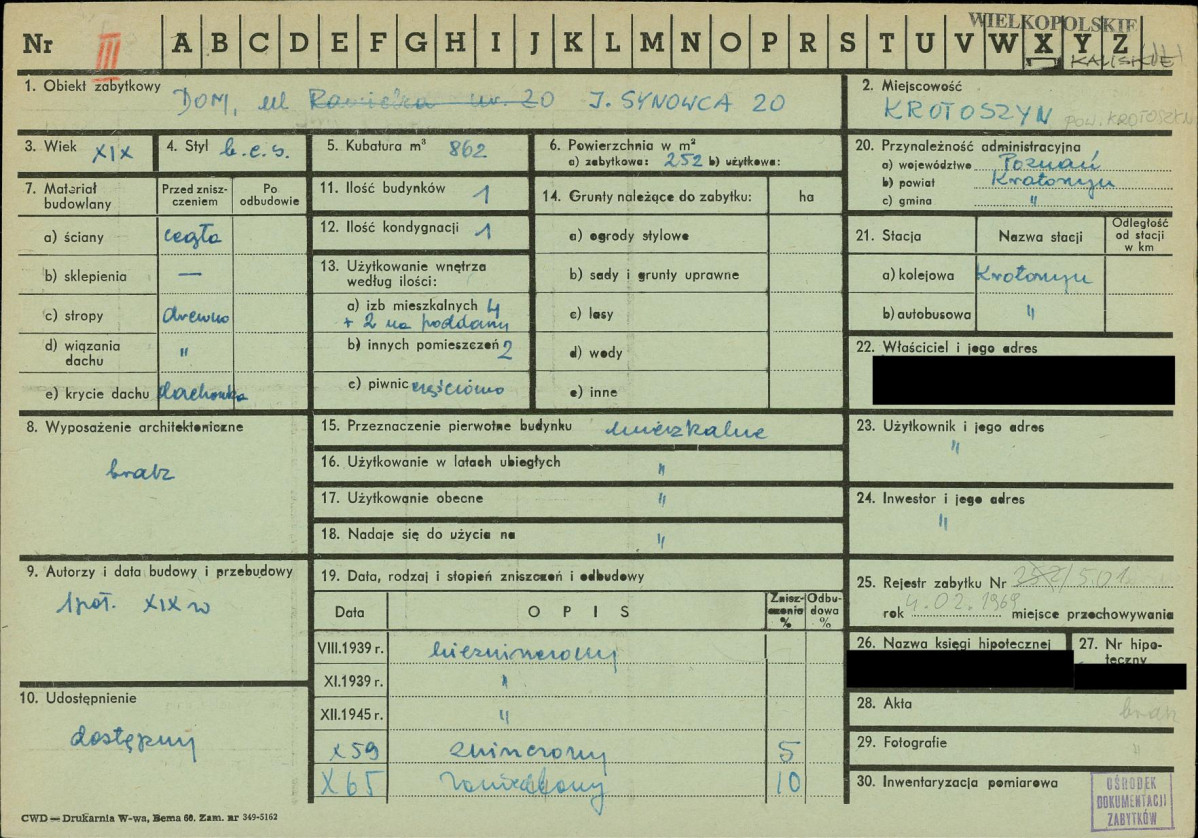 WIELKOPOLSKIE
Nr III A B C D E F G H I J K L M N O P R S T U V W X Y Z
KALISKIE
1. Obiekt zabytkowy DOM, ul Rawicka nr. 20 J. SYNOWCA 20
2. Miejscowość
KROTOSZYN POW. KROTOSZYN
3. Wiek XIX
4. Styl b.c.s.
5. Kubatura m³ 862
6. Powierzchnia w m²
a) zabytkowa: 252 b) użytkowa:
20. Przynależność administracyjna
a) województwo Poznań
b) powiat Krotoszyn
c) gmina "
7. Materiał budowlany
Przed zniszczeniem
Po odbudowie
a) ściany cegła
b) sklepienia —
c) stropy drewno
d) wiązania dachu "
e) krycie dachu dachówka
11. Ilość budynków 1
12. Ilość kondygnacji 1
13. Użytkowanie wnętrza
według ilości:
a) izb mieszkalnych 4
+ 2 na poddaszu
b) innych pomieszczeń 2
c) piwnic częściowo
14. Grunty należące do zabytku: ha
a) ogrody stylowe
b) sady i grunty uprawne
c) lasy
d) wody
e) inne
21. Stacja
Nazwa stacji
Odległość
od stacji
w km
a) kolejowa Krotoszyn
b) autobusowa "
22. Właściciel i jego adres
8. Wyposażenie architektoniczne
brak
15. Przeznaczenie pierwotne budynku mieszkalne
16. Użytkowanie w latach ubiegłych "
17. Użytkowanie obecne "
18. Nadaje się do użycia na "
23. Użytkownik i jego adres
"
24. Inwestor i jego adres
"
9. Autorzy i data budowy i przebudowy
1 poł. XIX w
19. Data, rodzaj i stopień zniszczeń i odbudowy
Data
OPIS
Zniszczenia %
Odbudowa %
VIII.1939 r. niezniszczony
XI.1939 r. "
XII.1945 r. "
X 59 zniszczony 5
X 65 zaniedbany 10
25. Rejestr zabytku Nr 252/501
rok 4.02.1969 miejsce przechowywania
26. Nazwa księgi hipotecznej
27. Nr hipoteczny
10. Udostępnienie
dostępny
28. Akta brak
29. Fotografie "
30. Inwentaryzacja pomiarowa
OŚRODEK
DOKUMENTACJI
ZABYTKÓW
CWD — Drukarnia W-wa, Bema 60. Zam. nr 349-5162